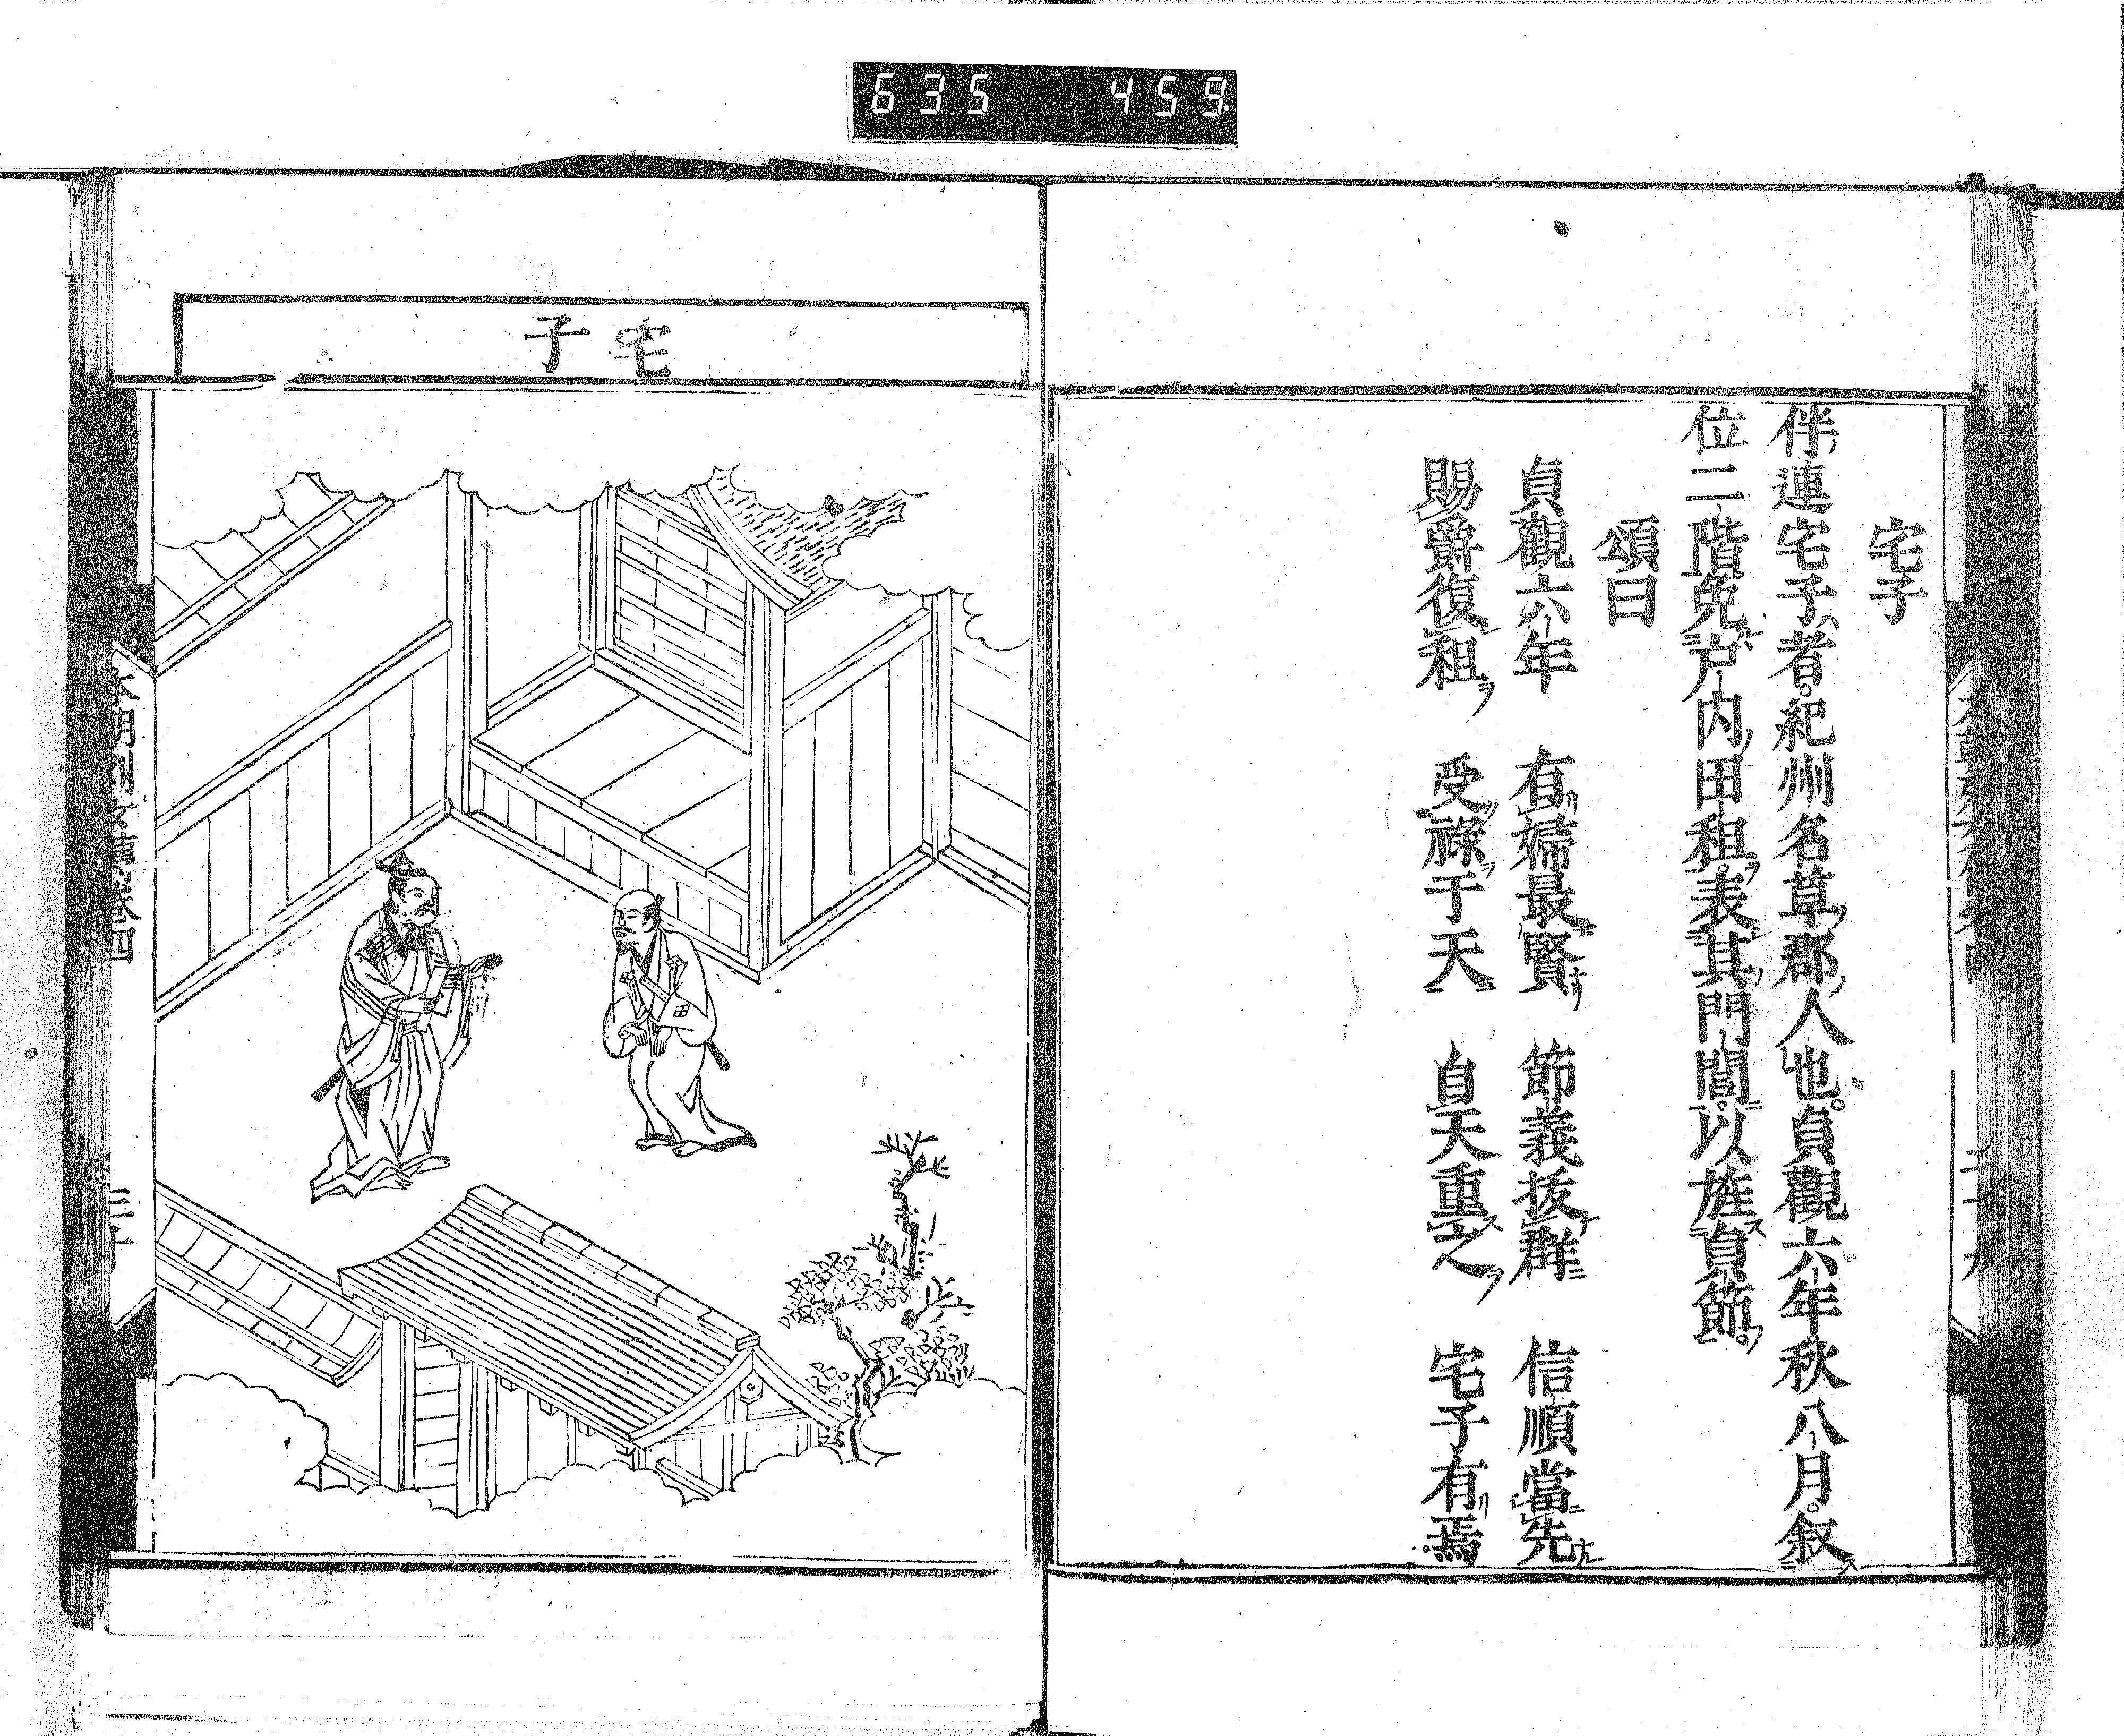 635 459
宅子
伴連宅子者。紀州名草郡人也。貞觀六年秋八月。叙
位二階免戸内田租。表其門閭。以旌貞節。
頌曰
貞觀六年 有婦最賢 節義拔群 信順當先
賜爵復租 受祿于天 自天重之 宅子有焉
宅子
本朝列女傳卷四